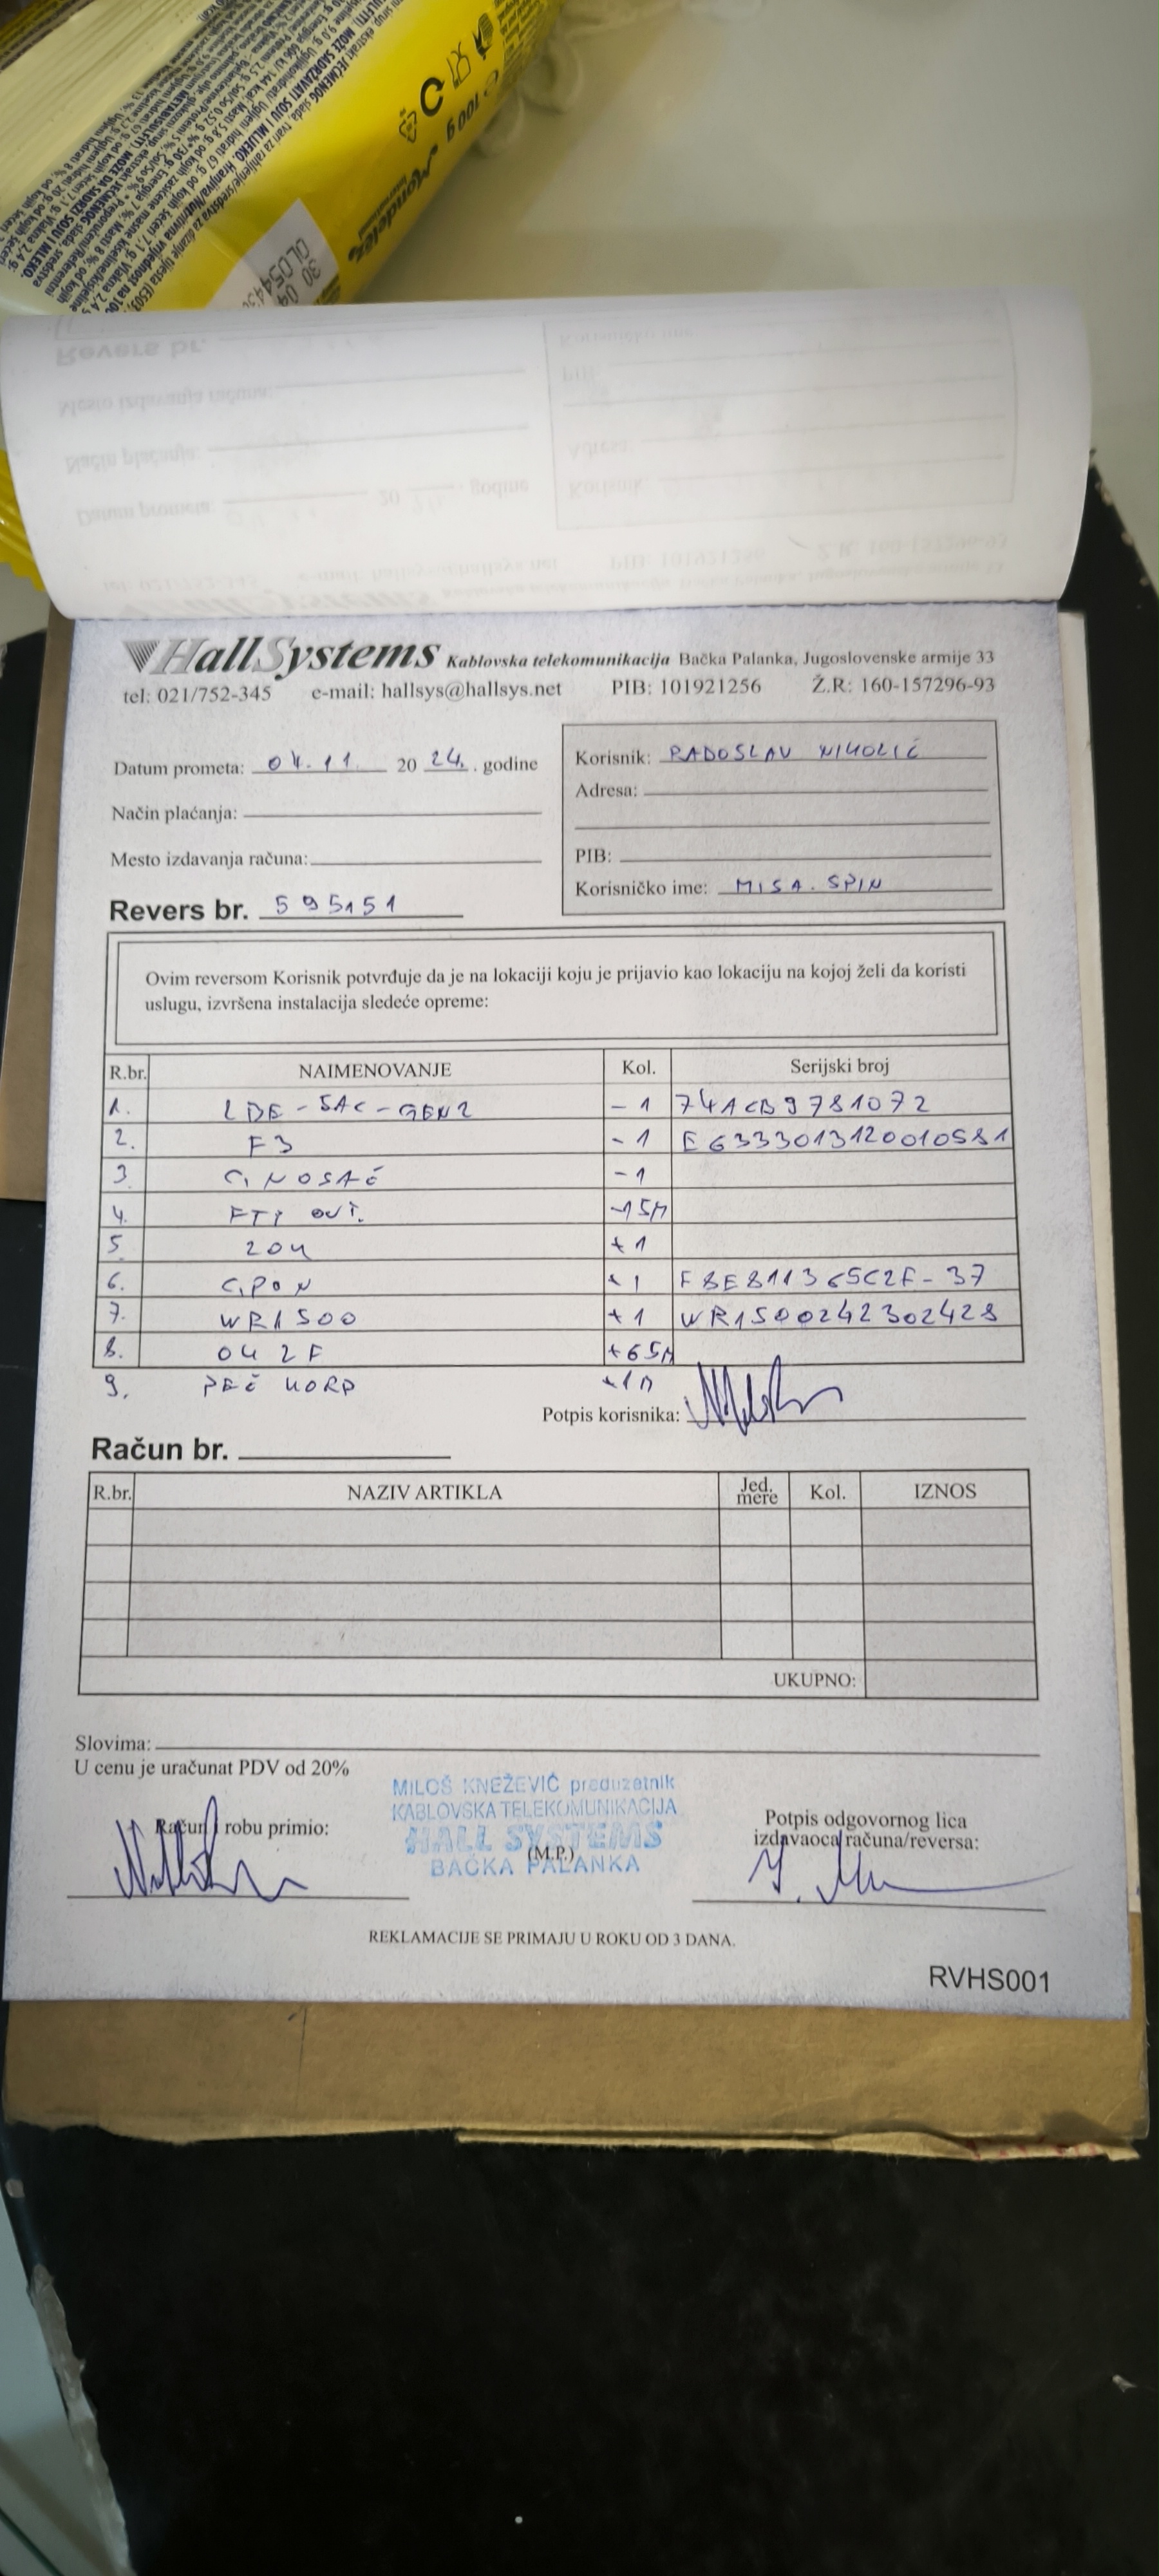 Mondelēz
International
100 g
HallSystems Kablovska telekomunikacija Bačka Palanka, Jugoslovenske armije 33
tel: 021/752-345 e-mail: hallsys@hallsys.net PIB: 101921256 Ž.R: 160-157296-93
Datum prometa: 04.11. 20 24. . godine
Način plaćanja:
Mesto izdavanja računa:
Revers br. 595151
Korisnik: RADOSLAV NIKOLIĆ
Adresa:
PIB:
Korisničko ime: MISA.SPIN
Ovim reversom Korisnik potvrđuje da je na lokaciji koju je prijavio kao lokaciju na kojoj želi da koristi
uslugu, izvršena instalacija sledeće opreme:
R.br. NAIMENOVANJE Kol. Serijski broj
1. LDE-5AC-GEN2 -1 74ACB9781072
2. F3 -1 E6333013120010581
3. G, NOSAČ -1
4. FTP OUT. -15M
5. 204 +1
6. GPON +1 F8E811365C2F-37
7. WR1500 +1 WR1500242302428
8. 04 2F +65M
9. PEČ KORD +1M
Potpis korisnika:
Račun br.
R.br. NAZIV ARTIKLA Jed. mere Kol. IZNOS
UKUPNO:
Slovima:
U cenu je uračunat PDV od 20%
MILOŠ KNEŽEVIĆ preduzetnik
KABLOVSKA TELEKOMUNIKACIJA
HALL SYSTEMS
(M.P.)
BAČKA PALANKA
Račun i robu primio:
Potpis odgovornog lica
izdavaoca računa/reversa:
REKLAMACIJE SE PRIMAJU U ROKU OD 3 DANA.
RVHS001